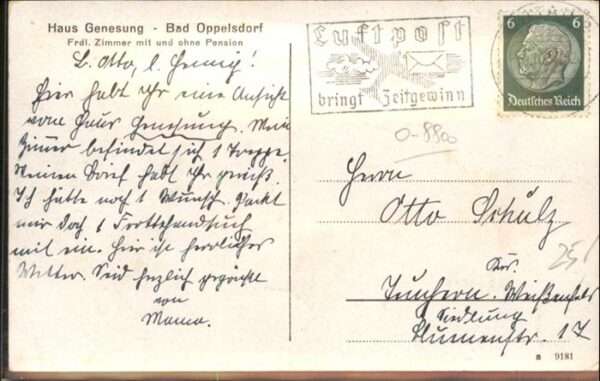 Haus Genesung - Bad Oppelsdorf
Frdl. Zimmer mit und ohne Pension
L. Otto, l. Heinz!
Hier habt Ihr eine Ansicht
vom Haus Genesung. Mein
Zimmer befindet sich 1 Treppe.
Meinen Brief habt Ihr gewiß.
Ich hätte noch 1 Wunsch. Packt
mir doch 1 Frottehandtuch
mit ein. Hier ist herrliches
Wetter. Seid herzlich gegrüßt
von
Mama.
Luftpost
bringt Zeitgewinn
6 6
Deutsches Reich
0-8800
Herrn
Otto Schulz
25
Krs.
Teuchern. Weißenfels
Siedlung
Blumenstr. 17
a 9181